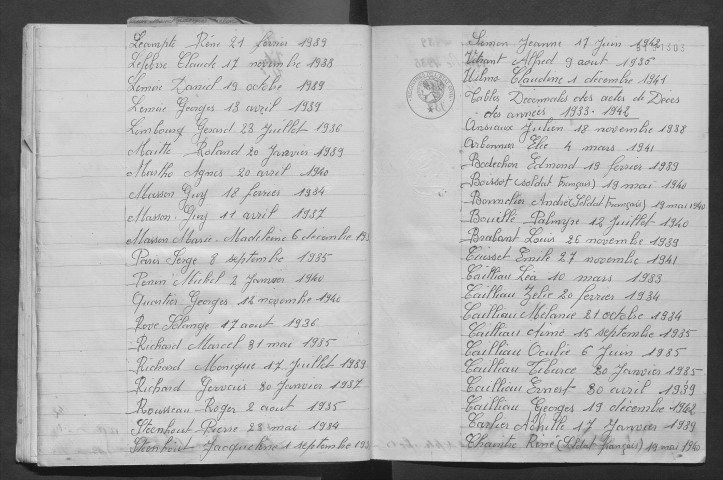 Lecompte Réné 21 fevrier 1939
Lefebvre Claude 17 novembre 1938
Lemire Daniel 19 octobre 1939
Lemire Georges 18 avril 1939
Lembourg Gerard 23 Juillet 1936
Maitte Roland 20 Janvier 1939
Martho Agnes 20 avril 1940
Masson Guy 18 fevrier 1934
Masson Guy 11 avril 1937
Masson Marie-Madeleine 6 décembre 193
Paris Serge 8 septembre 1935
Penin Michel 2 Janvier 1940
Quentier Georges 12 novembre 1940
Rove Solange 17 aout 1936
Richard Marcel 31 mai 1935
Richard Monique 17 Juillet 1939
Richard Gervais 30 Janvier 1937
Rousseau Roger 2 aout 1935
Steenhout Pierre 23 mai 1934
Steenhout Jacqueline 1 septembre 193
Simon Jeanne 17 Juin 1942
Vitrant Alfred 9 aout 1936
Wilmo Claudine 1 decembre 1941
Tables Decennales des actes de Deces
des années 1933-1942
Ansiaux Julien 18 novembre 1938
Arbonnier Elie 4 mars 1941
Bodechon Edmond 19 fevrier 1939
Boissot (soldat Français) 19 mai 1940
Bonnelier André (Soldat Français) 19 mai 1940
Bouillé Palmyre 12 Juillet 1940
Brabant Louis 26 novembre 1939
Cuisset Emile 27 novembre 1941
Cailliau Léa 10 mars 1933
Cailliau Zélie 20 fevrier 1934
Cailliau Mélanie 21 octobre 1934
Cailliau Aimé 15 septembre 1935
Cailliau Oculie 6 Juin 1935
Cailliau Tiburce 30 Janvier 1935
Cailliau Ernest 30 avril 1939
Cailliau Georges 19 décembre 1942
Carlier Achille 17 Janvier 1939
Chaintre Réné (Soldat français) 19 mai 1940